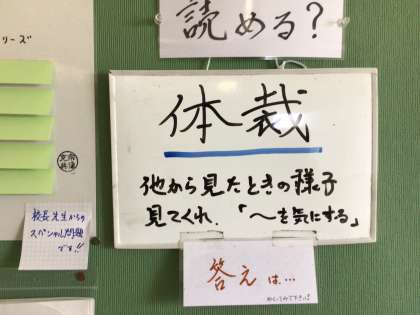 読める?
リーズ
体裁
他から見たときの様子
見てくれ.「〜を気にする」
校長先生からの
スペシャル問題
です!!
答えは…
めくってみて下さい♪